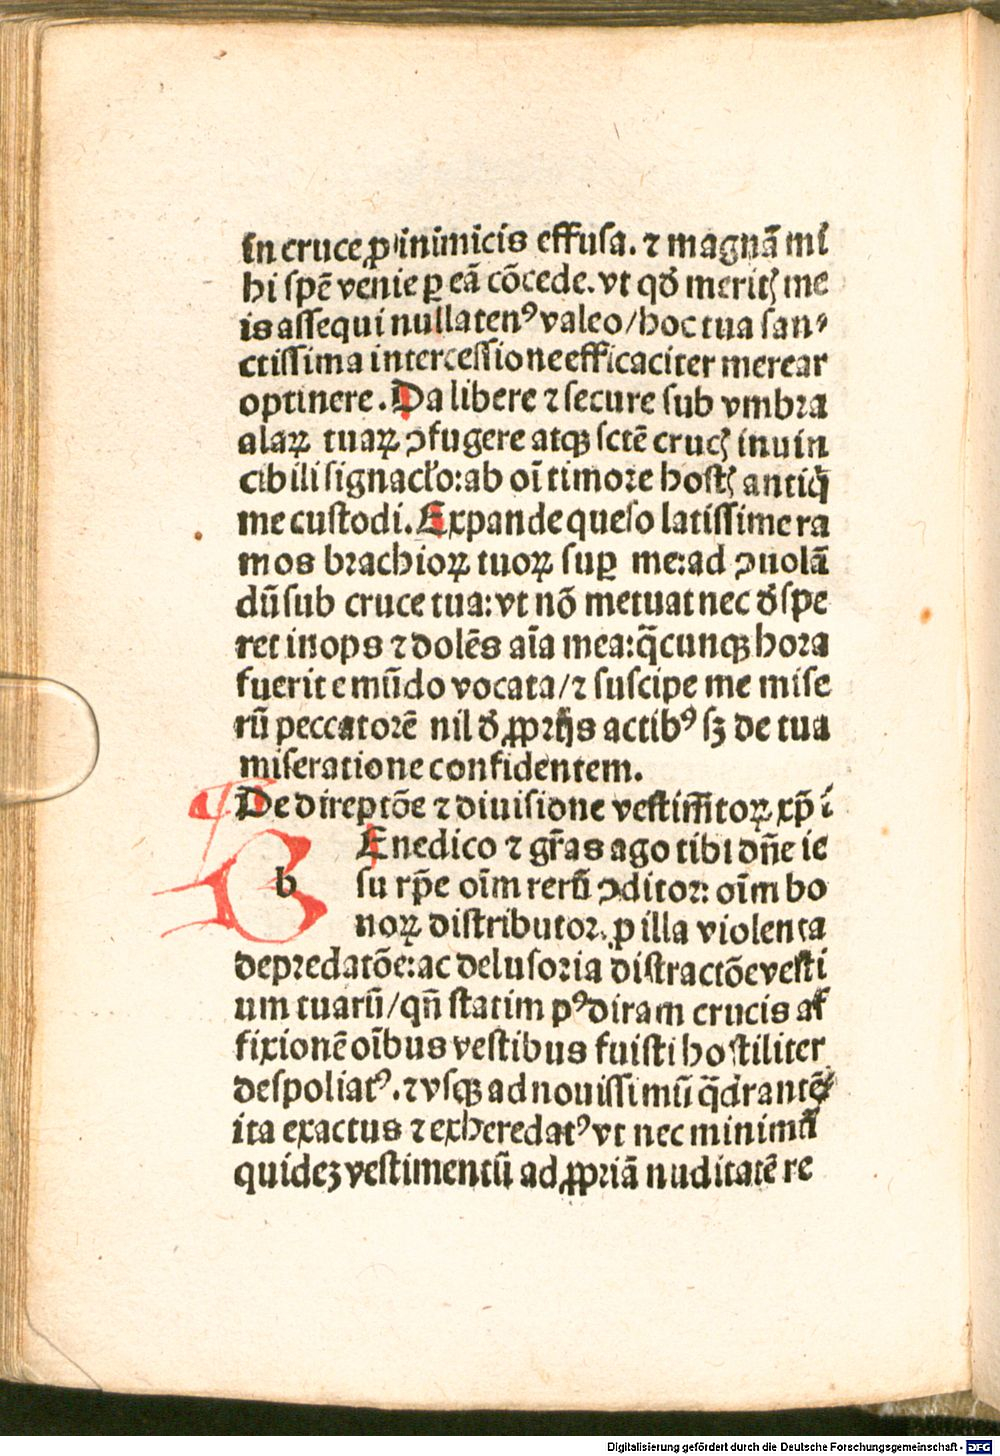 in cruce ꝓ inimicis effuſa. ⁊ magnā mi
hi ſpē venie ꝑ eā cōcede. vt qđ meritꝭ me
is aſſequi nullatenꝰ valeo/hoc tua ſan⸗
ctiſſima interceſſione efficaciter merear
optinere. Da libere ⁊ ſecure ſub vmbra
alaꝝ tuaꝝ ꝯfugere atqꝫ ſctē crucꝭ inuin
cibili ſignacło: ab oī timore hoſtꝭ antiq̄
me cuſtodi. Expande queſo latiſſime ra
mos brachioꝝ tuoꝝ ſuꝑ me: ad ꝯuolā
dū ſub cruce tua: vt nō metuat nec đſpe
ret inops ⁊ dolēs aīa mea: q̄cunqꝫ hora
fuerit e mūdo vocata/⁊ ſuſcipe me miſe
rū peccatorē nil đ ꝓprijs actibꝰ ſꝫ de tua
miſeratione confidentem.
De direptōe ⁊ diuiſione veſtim̄toꝝ xp̄i
b Enedico ⁊ gr̄as ago tibi dn̄e ie
ſu rp̄e oīm rerū ꝯditor: oīm bo
noꝝ diſtributor. ꝓ illa violenta
depredatōe: ac deluſoria diſtractōe veſti
um tuarū/qn̄ ſtatim pꝰ diram crucis af
fixionē oībus veſtibus fuiſti hoſtiliter
deſpoliatꝰ. ⁊ vſqꝫ ad nouiſſimū q̄drantē
ita exactus ⁊ exheredatꝰ vt nec minimū
quideꝫ veſtimentū ad ꝓpriā nuditatē re
Digitalisierung gefördert durch die Deutsche Forschungsgemeinschaft - DFG